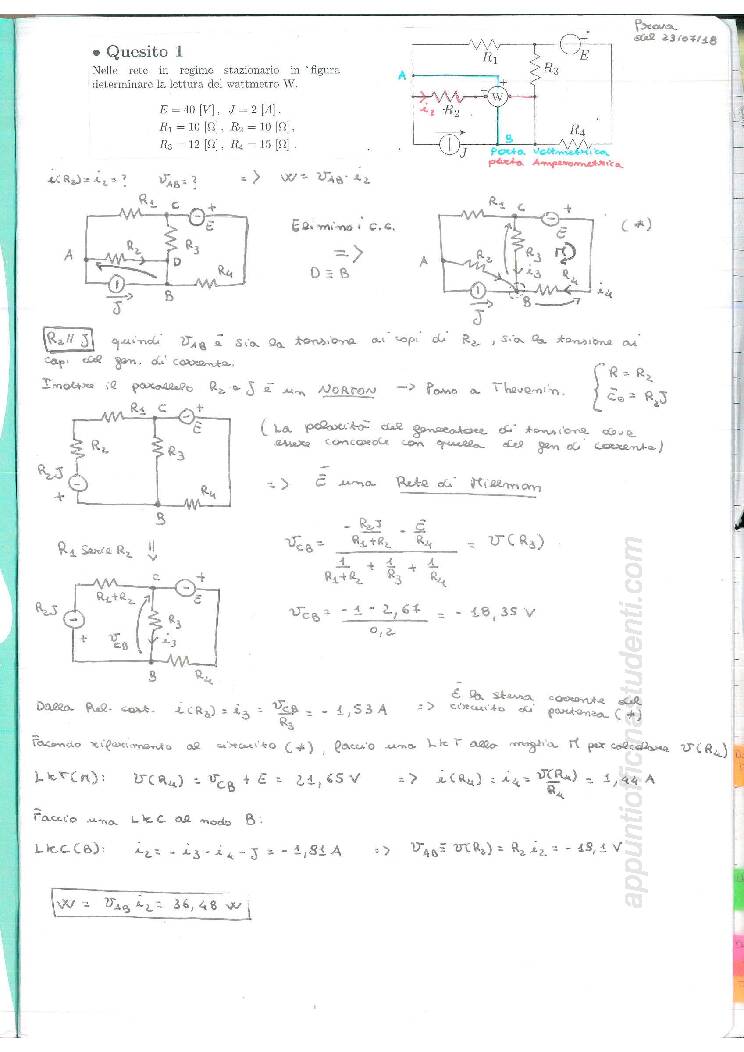 Prova
del 23/07/18
• Quesito 1
Nella rete in regime stazionario in figura
determinare la lettura del wattmetro W.
E = 40 [V] , J = 2 [A] ,
R1 = 10 [Ω] , R2 = 10 [Ω] ,
R3 = 12 [Ω] , R4 = 15 [Ω] .
R1
E
R3
A
W
i2
R2
B
J
R4
Porta Voltmetrica
porta Amperometrica
i(R2) = i2 = ? VAB = ? => W = VAB · i2
R1 C + E
A R2 R3 D R4
J B
Elimino i c.c.
=>
D ≡ B
R1 C + E (*)
A R2 R3 i3 M R4 i4
J B
R2 // J quindi VAB è sia la tensione ai capi di R2, sia la tensione ai
capi del gen. di corrente.
Inoltre il parallelo R2 e J è un NORTON -> Passo a Thevenin. { R = R2
E0 = R2J
R1 C + E
R2 R3
R2J + B R4
(La polarità del generatore di tensione deve
essere concorde con quella del gen di corrente)
=> È una Rete di Millman
R1 serie R2 ⇓
VCB = (-R2J/(R1+R2) - E/R4) / (1/(R1+R2) + 1/R3 + 1/R4) = V(R3)
R1+R2 C + E
R2J + VCB R3 i3
B R4
VCB = (-1 - 2,67)/0,2 = - 18,35 V
Dalla Rel. cost. i(R3) = i3 = VCB/R3 = - 1,53 A => È la stessa corrente del
circuito di partenza (*)
Facendo riferimento al circuito (*), faccio una LKT alla maglia M per calcolare V(R4)
LKT(M): V(R4) = VCB + E = 21,65 V => i(R4) = i4 = V(R4)/R4 = 1,44 A
Faccio una LKC al nodo B:
LKC(B): i2 = - i3 - i4 - J = - 1,91 A => VAB ≡ V(R2) = R2 i2 = - 19,1 V
W = VAB i2 = 36,48 W
appuntiofficinastudenti.com